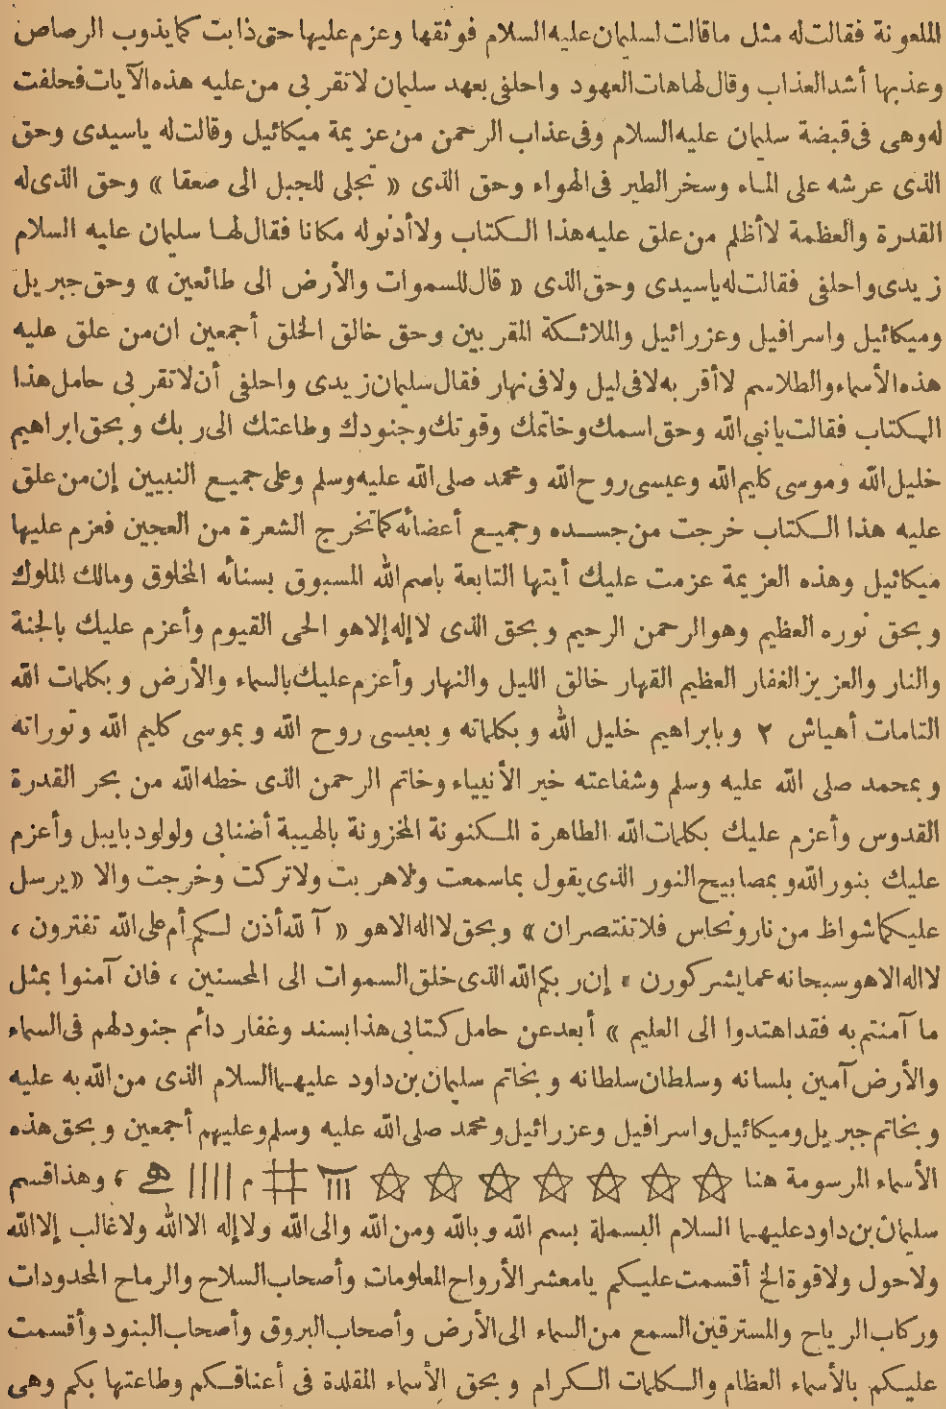 الملعونة فقالت له مثل ماقالت لسليمان عليه السلام فوثقها وعزم عليها حتى ذابت كما يذوب الرصاص
وعذبها أشد العذاب وقال لها هات العهود واحلفى بعهد سليمان لاتقربى من عليه هذه الآيات فحلفت
له وهى فى قبضة سليمان عليه السلام وفى عذاب الرحمن من عزيمة ميكائيل وقالت له ياسيدى وحق
الذى عرشه على الماء وسخر الطير فى الهواء وحق الذى « تجلى للجبل الى صعقا » وحق الذى له
القدرة والعظمة لاأظلم من علق عليه هذا الكتاب ولاأدنوله مكانا فقال لها سليمان عليه السلام
زيدى واحلفى فقالت له ياسيدى وحق الذى « قال للسموات والأرض الى طائعين » وحق جبريل
وميكائيل واسرافيل وعزرائيل والملائكة المقربين وحق خالق الخلق أجمعين ان من علق عليه
هذه الأسماء والطلاسم لاأقر به لافى ليل ولافى نهار فقال سليمان زيدى واحلفى أن لاتقربى حامل هذا
الكتاب فقالت يانبى الله وحق اسمك وخاتمك وقوتك وجنودك وطاعتك الى ربك وبحق ابراهيم
خليل الله وموسى كليم الله وعيسى روح الله ومحمد صلى الله عليه وسلم وعلى جميع النبيين إن من علق
عليه هذا الكتاب خرجت من جسده وجميع أعضائه كما تخرج الشعرة من العجين فعزم عليها
ميكائيل وهذه العزيمة عزمت عليك أيتها التابعة باسم الله المسبوق بسنائه المخلوق ومالك الملوك
وبحق نوره العظيم وهو الرحمن الرحيم وبحق الذى لاإله إلاهو الحى القيوم وأعزم عليك بالجنة
والنار والعزيز الغفار العظيم القهار خالق الليل والنهار وأعزم عليك بالسماء والأرض وبكلمات الله
التامات أهياش ٢ وبابراهيم خليل الله وبكلماته وبعيسى روح الله وبموسى كليم الله وتوراته
وبمحمد صلى الله عليه وسلم وشفاعته خير الأنبياء وخاتم الرحمن الذى خطه الله من بحر القدرة
القدوس وأعزم عليك بكلمات الله الطاهرة المكنونة المخزونة بالهيبة أضنانى ولولود بابيل وأعزم
عليك بنور الله وبمصابيح النور الذى يقول بماسمعت ولاهربت ولاتركت وخرجت والا « يرسل
عليكما شواظ من نار ونحاس فلا تنتصران » وبحق لااله الاهو « آلله أذن لكم أم على الله تفترون ،
لااله الاهو سبحانه عمايشركورن ، إن ربكم الله الذى خلق السموات الى المحسنين ، فان آمنوا بمثل
ما آمنتم به فقد اهتدوا الى العليم » أبعد عن حامل كتابى هذا بسند وغفار دائم جنودلهم فى السماء
والأرض آمين بلسانه وسلطان سلطانه وبخاتم سليمان بن داود عليهما السلام الذى من الله به عليه
وبخاتم جبريل وميكائيل واسرافيل وعزرائيل ومحمد صلى الله عليه وسلم وعليهم أجمعين وبحق هذه
الأسماء المرسومة هنا ✡ ✡ ✡ ✡ ✡ ✡ ✡ ااا # م اااا ، وهذا قسم
سليمان بن داود عليهما السلام البسملة بسم الله وبالله ومن الله والى الله ولاإله الاالله ولاغالب إلاالله
ولاحول ولاقوة الخ أقسمت عليكم يامعشر الأرواح المعلومات وأصحاب السلاح والرماح المحدودات
وركاب الرياح والمسترقين السمع من السماء الى الأرض وأصحاب البروق وأصحاب البنود وأقسمت
عليكم بالأسماء العظام والكلمات الكرام وبحق الأسماء المقلدة فى أعناقكم وطاعتها بكم وهى